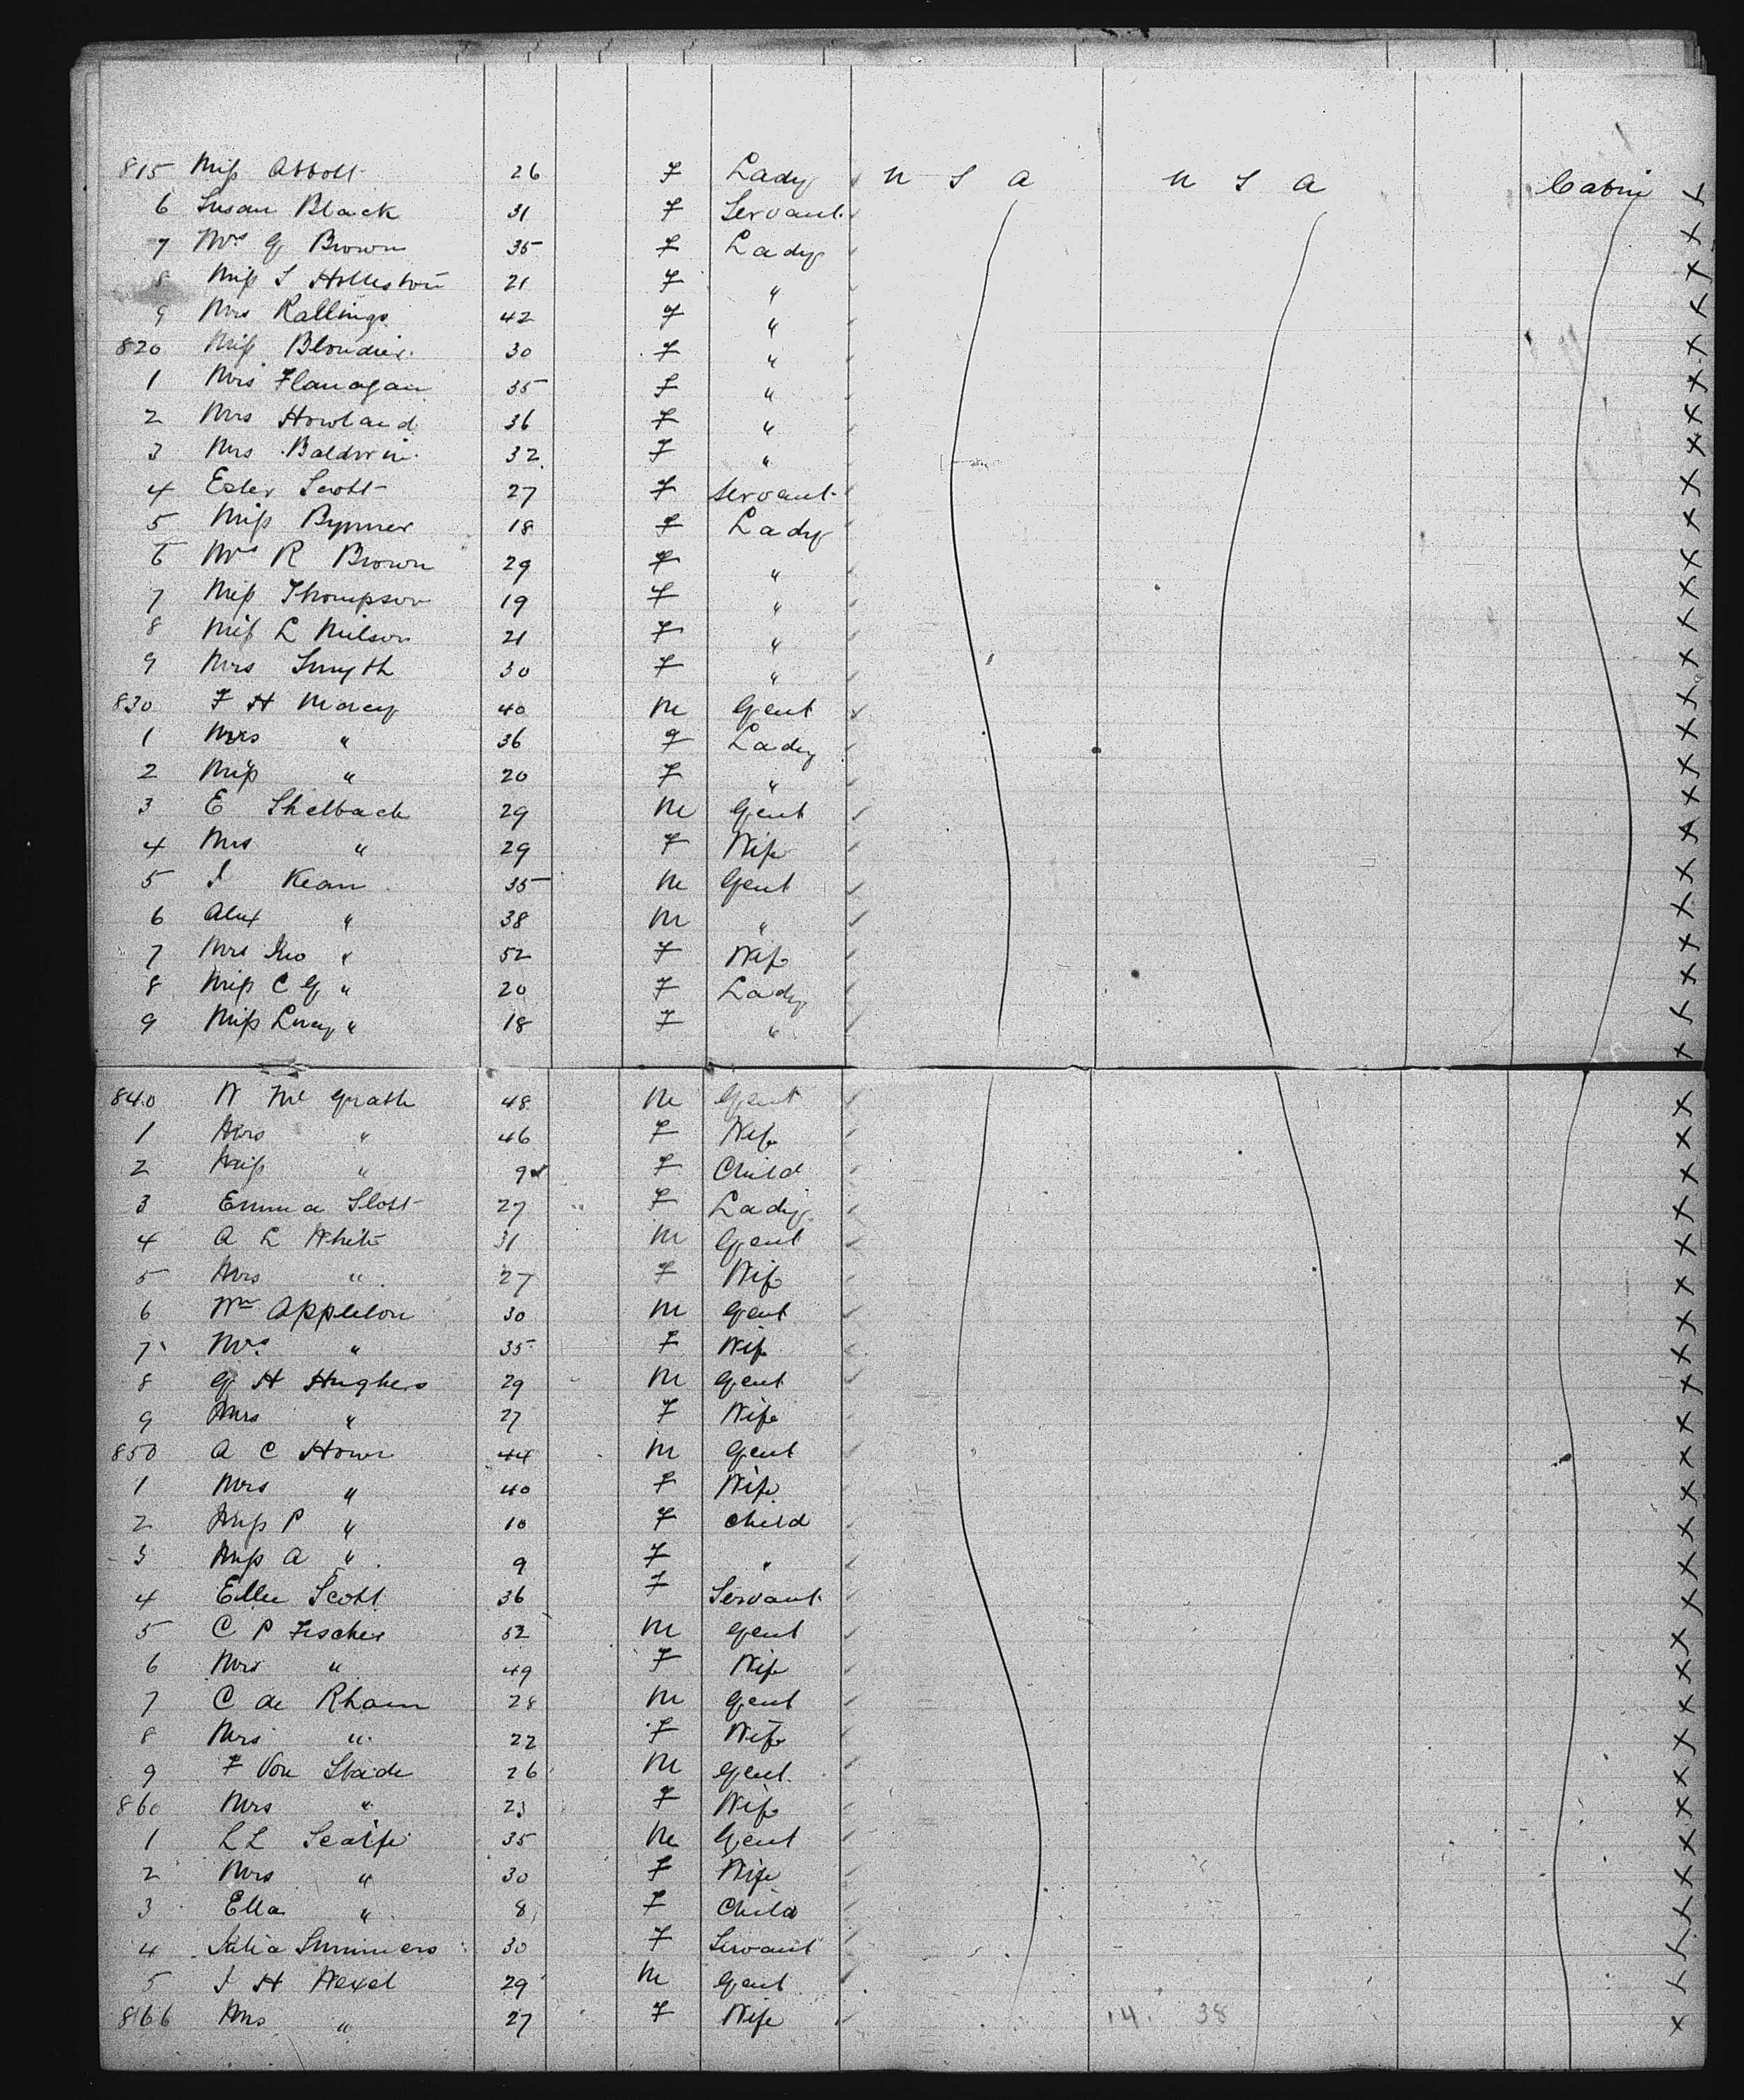 815 Miss Abbott 26 F Lady U S A U S A Cabin X
6 Susan Black 31 F Servant X
7 Mrs G Brown 35 F Lady X
8 Miss S 21 F " X
9 Mrs Rallings 42 F " X
820 Miss 30 F " X
1 Mrs Flanagan 35 F " X
2 Mrs Howland 36 F " X
3 Mrs Baldwin 32 F " X
4 Ester Scott 27 F Servant X
5 Miss Bynner 18 F Lady X
6 Mrs R Brown 29 F " X
7 Miss Thompson 19 F " X
8 Miss L 21 F " X
9 Mrs Smyth 30 F " X
830 F H Marcy 40 M Gent X
1 Mrs " 36 F Lady X
2 Miss " 20 F " X
3 E Shelbach 29 M Gent X
4 Mrs " 29 F Wife X
5 J Kean 35 M Gent X
6 Alex " 38 M " X
7 Mrs Jno " 52 F Wife X
8 Miss C G " 20 F Lady X
9 Miss Lucy " 18 F " X
840 W Mc Grath 48 M Gent X
1 Mrs " 46 F Wife X
2 Miss " 9 F Child X
3 Emma 27 F Lady X
4 A L White 31 M Gent X
5 Mrs " 27 F Wife X
6 Wm Appleton 30 M Gent X
7 Mrs " 35 F Wife X
8 G H Hughes 29 M Gent X
9 Mrs " 27 F Wife X
850 A C Howe 44 M Gent X
1 Mrs " 40 F Wife X
2 Miss P " 10 F Child X
3 Miss A " 9 F " X
4 Ellen Scott 36 F Servant X
5 C P Fischer 52 M Gent X
6 Mrs " 49 F Wife X
7 C de Rham 28 M Gent X
8 Mrs " 22 F Wife X
9 F Von Stade 26 M Gent X
860 Mrs " 23 F Wife X
1 L L Scaife 35 M Gent X
2 Mrs " 30 F Wife X
3 Ella " 8 F Child X
4 Julia Summers 30 F Servant X
5 J H Wexel 29 M Gent X
866 Mrs " 27 F Wife 14. 38 X